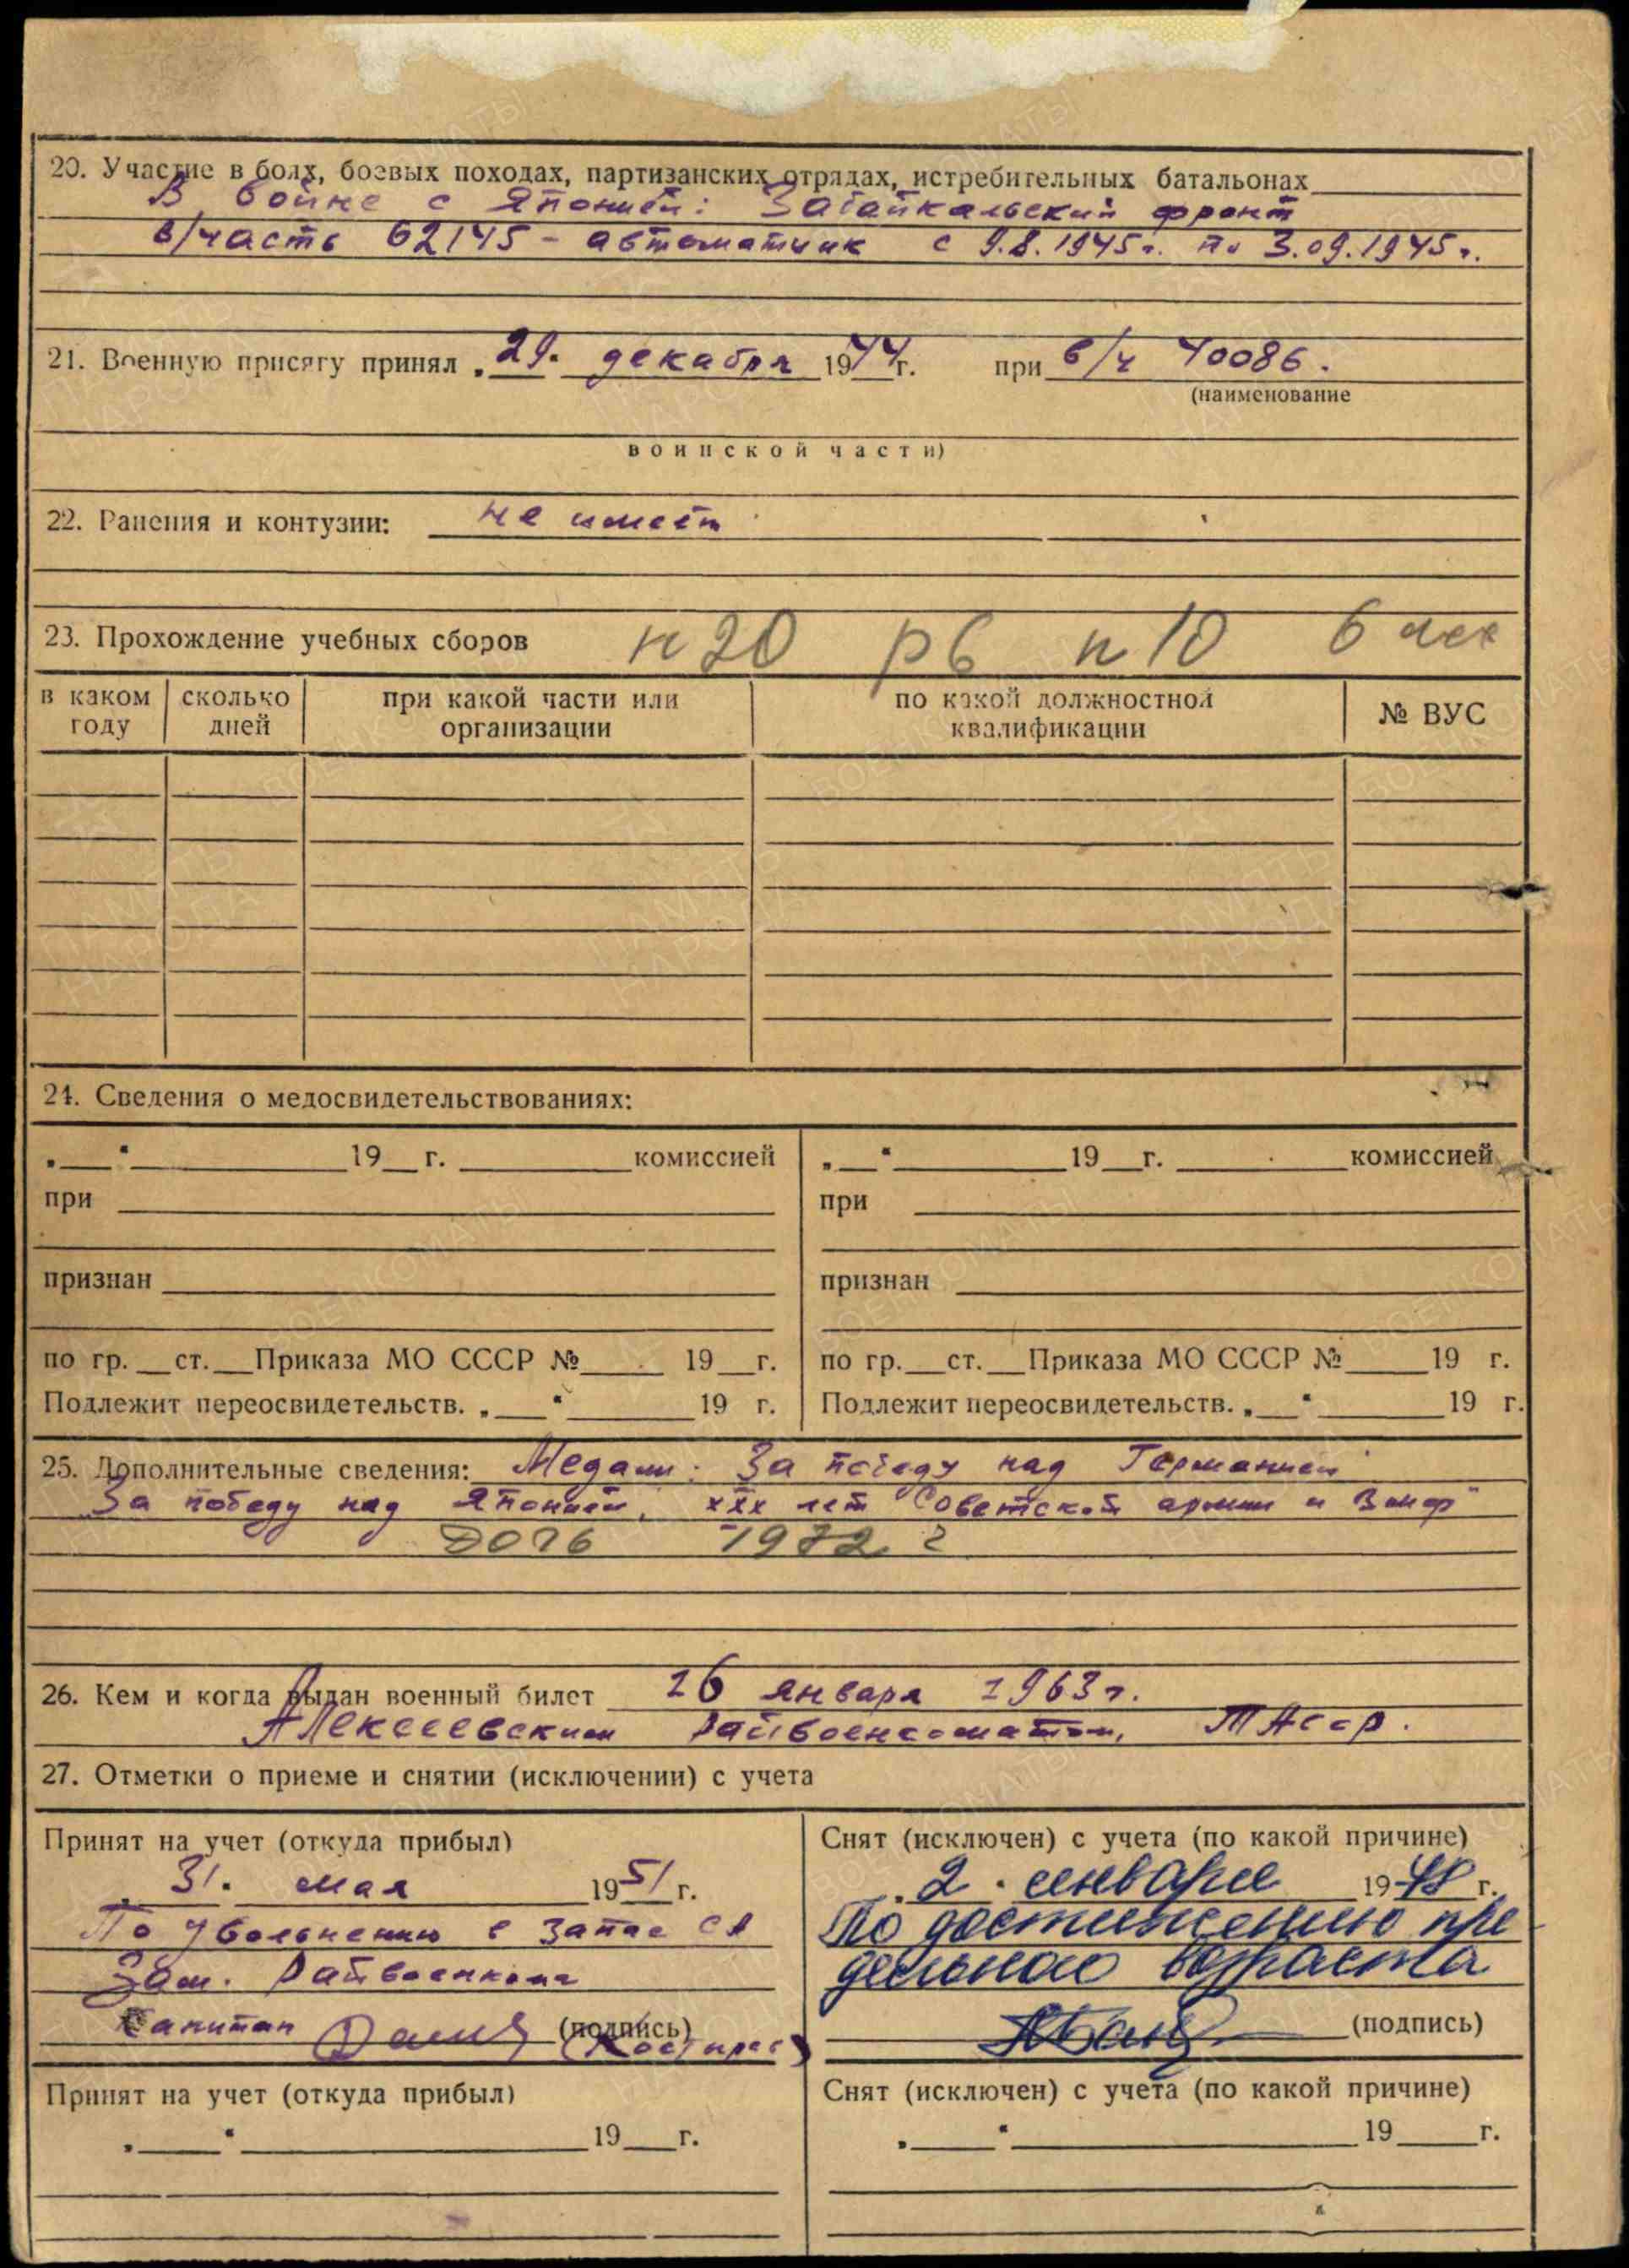 20. Участие в боях, боевых походах, партизанских отрядах, истребительных батальонах
В войне с Японией: Забайкальский фронт
в/часть 62145 - автоматчик с 9.8.1945г. по 3.09.1945г.
21. Военную присягу принял „29." декабря 1944г. при в/ч 40086.
(наименование
воинской части)
22. Ранения и контузии: не имеет
23. Прохождение учебных сборов п 20 р 6 п 10 6 мес
в каком году сколько дней при какой части или организации по какой должностной квалификации № ВУС
24. Сведения о медосвидетельствованиях:
„ " 19 г. комиссией
при
признан
по гр. ст. Приказа МО СССР № 19 г.
Подлежит переосвидетельств. „ " 19 г.
„ " 19 г. комиссией
при
признан
по гр. ст. Приказа МО СССР № 19 г.
Подлежит переосвидетельств. „ " 19 г.
25. Дополнительные сведения: Медали: За победу над Германией
„За победу над Японией, ххх лет Советской армии и Вмф"
1972 г
26. Кем и когда выдан военный билет 16 января 1963г.
Алексеевским Райвоенкоматом, ТАССР.
27. Отметки о приеме и снятии (исключении) с учета
Принят на учет (откуда прибыл)
„31." мая 1951г.
По увольнению в запас СА
Зам. Райвоенкома
Капитан (подпись)
Снят (исключен) с учета (по какой причине)
„2." января 1978 г.
По достижению пре
дельного возраста
(подпись)
Принят на учет (откуда прибыл)
„ " 19 г.
Снят (исключен) с учета (по какой причине)
„ " 19 г.